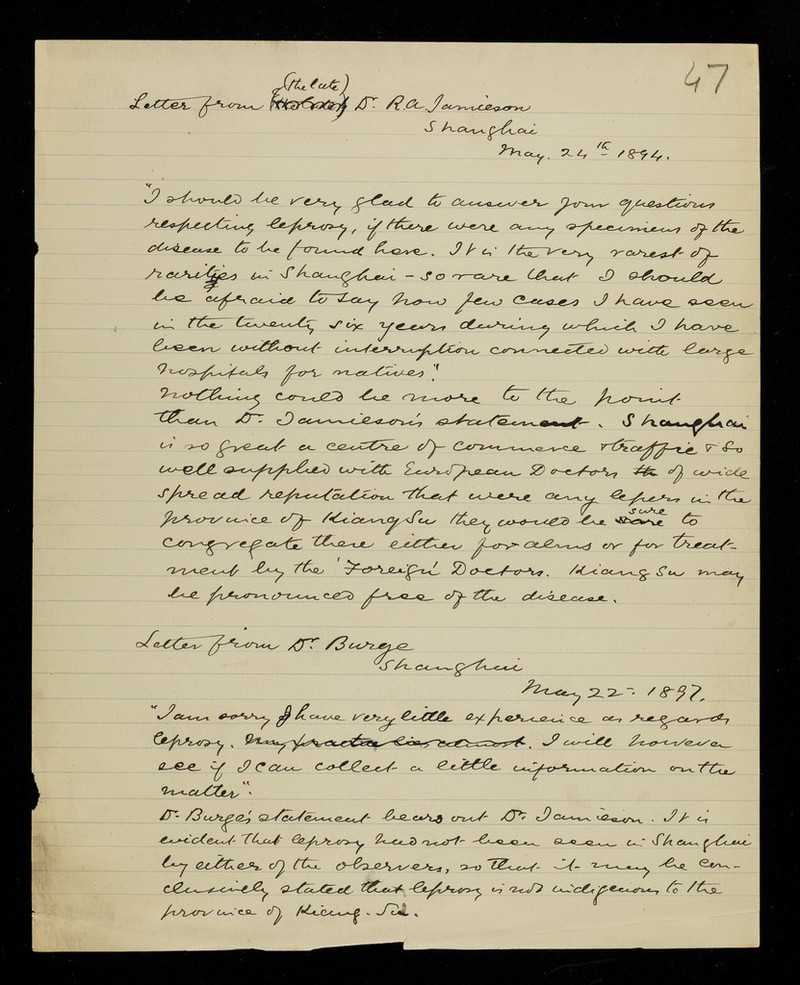 47
(the late)
Letter from Dr. R.A. Jamieson
Shanghai
May. 24th 1894.
"I should be very glad to answer your questions
respecting leprosy, if there were any specimens of the
disease to be found here. It is the very rarest of
rarities in Shanghai – so rare that I should
be afraid to say how few cases I have seen
in the twenty six years during which I have
been without interruption connected with large
hospitals for natives".
Nothing could be more to the point
than Dr. Jamieson's statement. Shanghai
is so great a centre of commerce & traffic & so
well supplied with European Doctors th of wide
spread reputation that were any lepers in the
sure
province of Kiang Su they would be to
congregate there either for alms or for treat-
ment by the 'Foreign' Doctors. Kiang Su may
be pronounced free of the disease.
Letter from Dr. Burge
Shanghai
May 22 - 1897.
"I am sorry I have very little experience as regards
leprosy. My practice lies almost. I will however
see if I can collect a little information on the
matter".
Dr. Burge's statement bears out Dr. Jamieson. It is
evident that leprosy had not been seen in Shanghai
by either of the observers, so that it may be con-
clusively stated that leprosy is not indigenous to the
province of Kiang-Su.